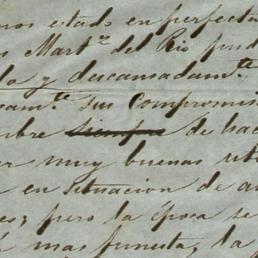 mos estado en perfecta
Mart.ez del Rio pud
lo y descansadam.te
sam.te sus compromis
mbre siempre de hac
er muy buenas uti
en situacion de a
es; pero la época se
mas funesta, la